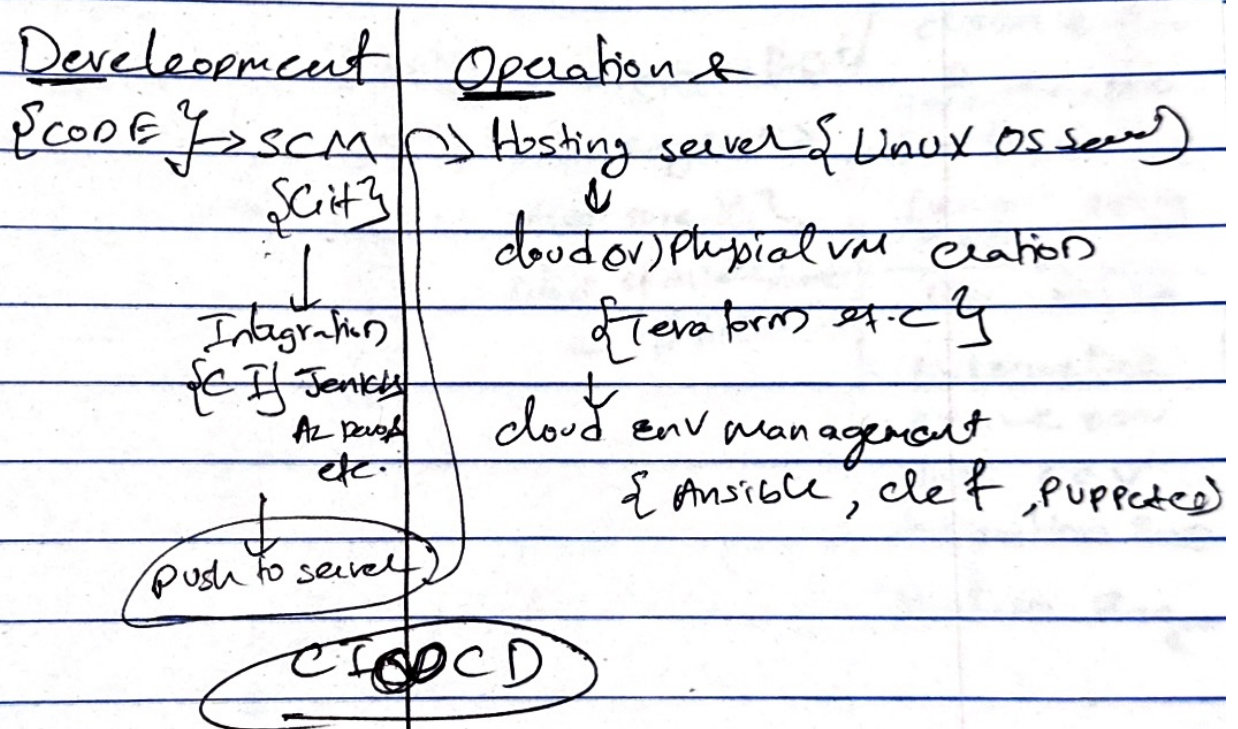 Development
{CODE} → SCM
{Git}
↓
Integration
{CI} Jenkins
Az Devops
etc.
↓
push to server
Operations
→ Hosting server { Linux OS server }
↓
cloud (or) Physical VM creation
{Terraform etc}
↓
cloud env management
{ Ansible, chef, puppet etc }
CI CD